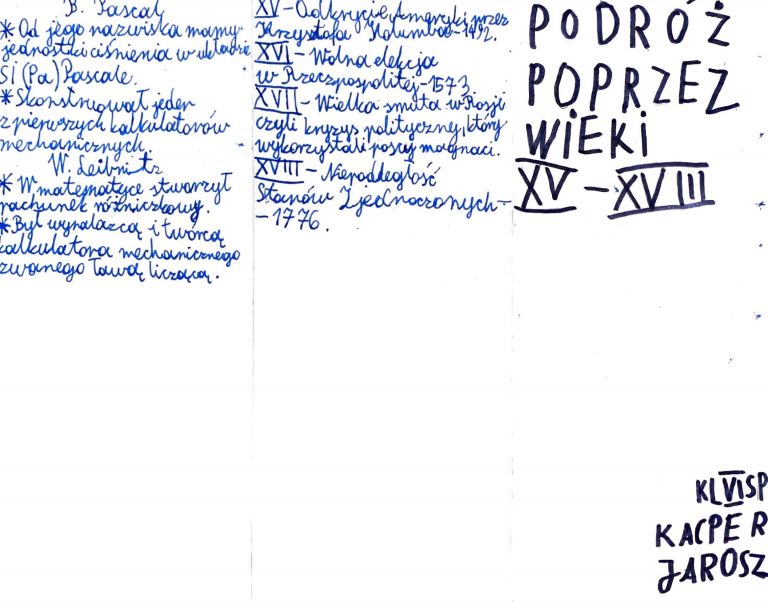 B. Pascal
* Od jego nazwiska mamy
jednostki ciśnienia w układzie
SI (Pa) Pascale.
* Skonstruował jeden
z pierwszych kalkulatorów
mechanicznych.
W. Leibnitz
* W matematyce stworzył
rachunek różniczkowy.
* Był wynalazcą i twórcą
kalkulatora mechanicznego
zwanego ławą liczącą.
XV - Odkrycie Ameryki przez
Krzysztofa Kolumba - 1492.
XVI - Wolna elekcja
w Rzeczpospolitej - 1573
XVII - Wielka smuta w Rosji
czyli kryzys polityczny, który
wykorzystali poscy magnaci.
XVIII - Niepodległość
Stanów Zjednoczonych -
- 1776.
PODRÓŻ
POPRZEZ
WIEKI
XV - XVIII
KL VI SP
KACPER
JAROSZ